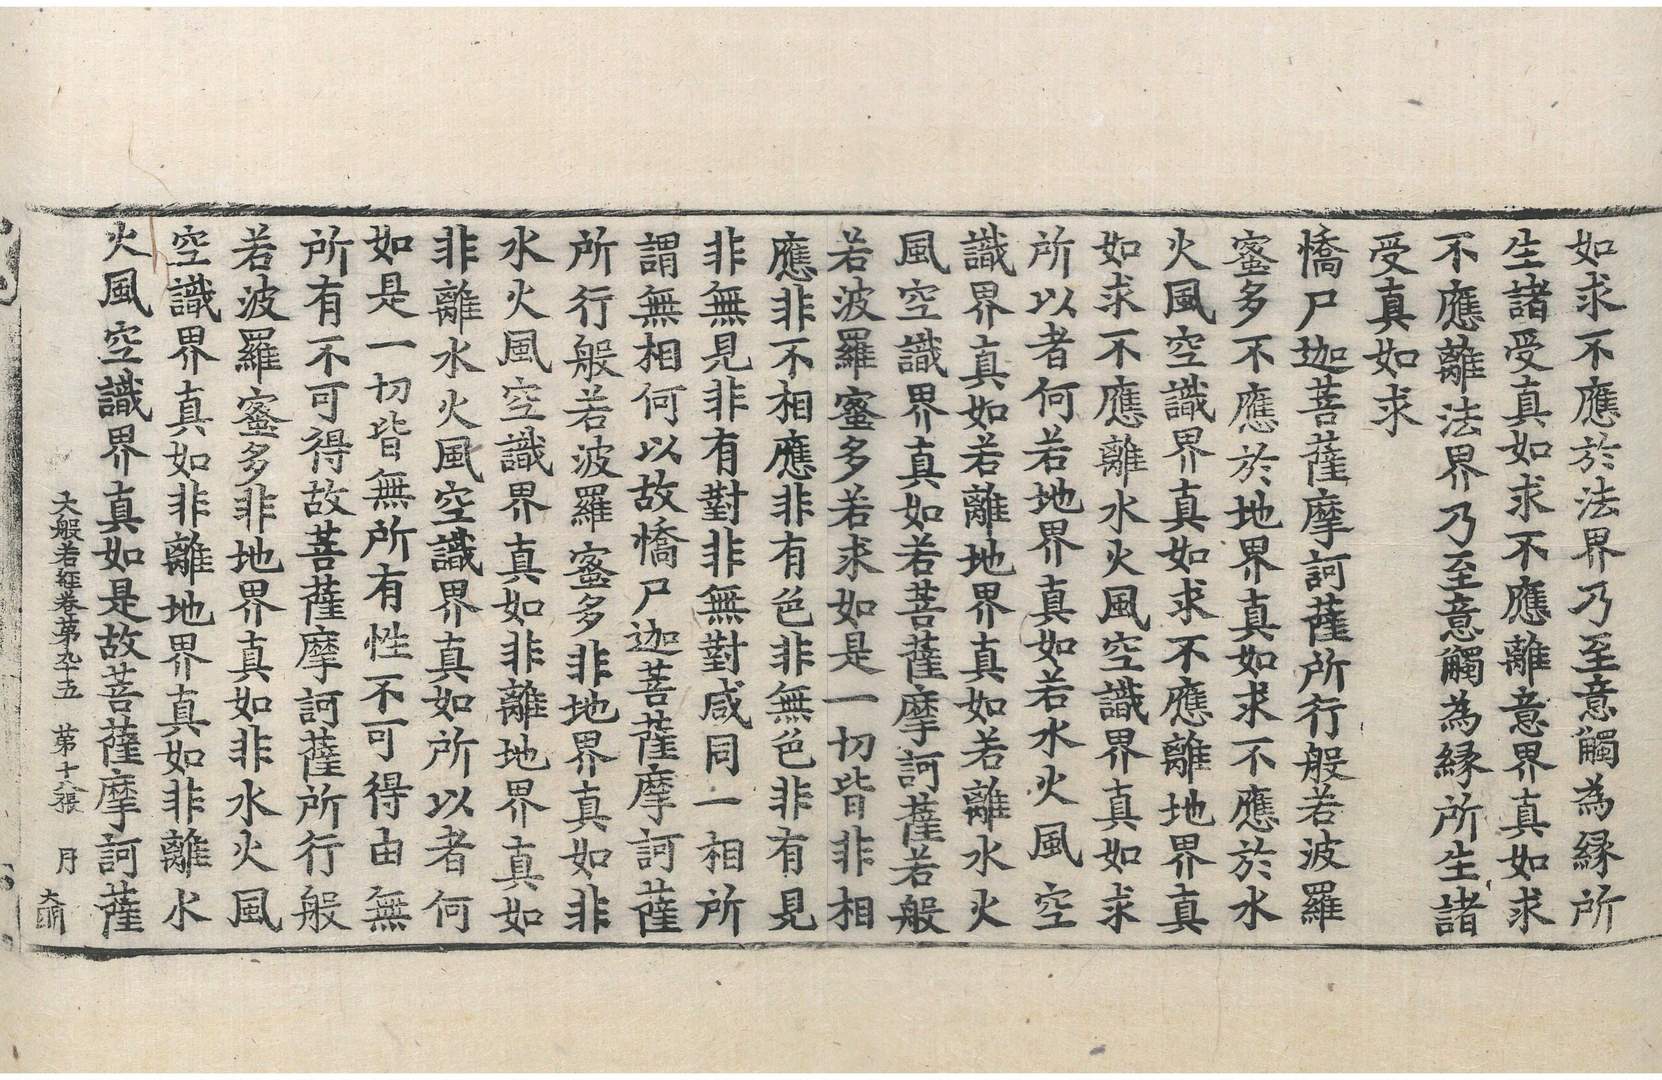 如求不應於法界乃至意觸為縁所
生諸受真如求不應離意界真如求
不應離法界乃至意觸為縁所生諸
受真如求
憍尸迦菩薩摩訶薩所行般若波羅
蜜多不應於地界真如求不應於水
火風空識界真如求不應離地界真
如求不應離水火風空識界真如求
所以者何若地界真如若水火風空
識界真如若離地界真如若離水火
風空識界真如若菩薩摩訶薩若般
若波羅蜜多若求如是一切皆非相
應非不相應非有色非無色非有見
非無見非有對非無對咸同一相所
謂無相何以故憍尸迦菩薩摩訶薩
所行般若波羅蜜多非地界真如非
水火風空識界真如非離地界真如
非離水火風空識界真如所以者何
如是一切皆無所有性不可得由無
所有不可得故菩薩摩訶薩所行般
若波羅蜜多非地界真如非水火風
空識界真如非離地界真如非離水
火風空識界真如是故菩薩摩訶薩
大般若経巻第九十五 第十八張 月